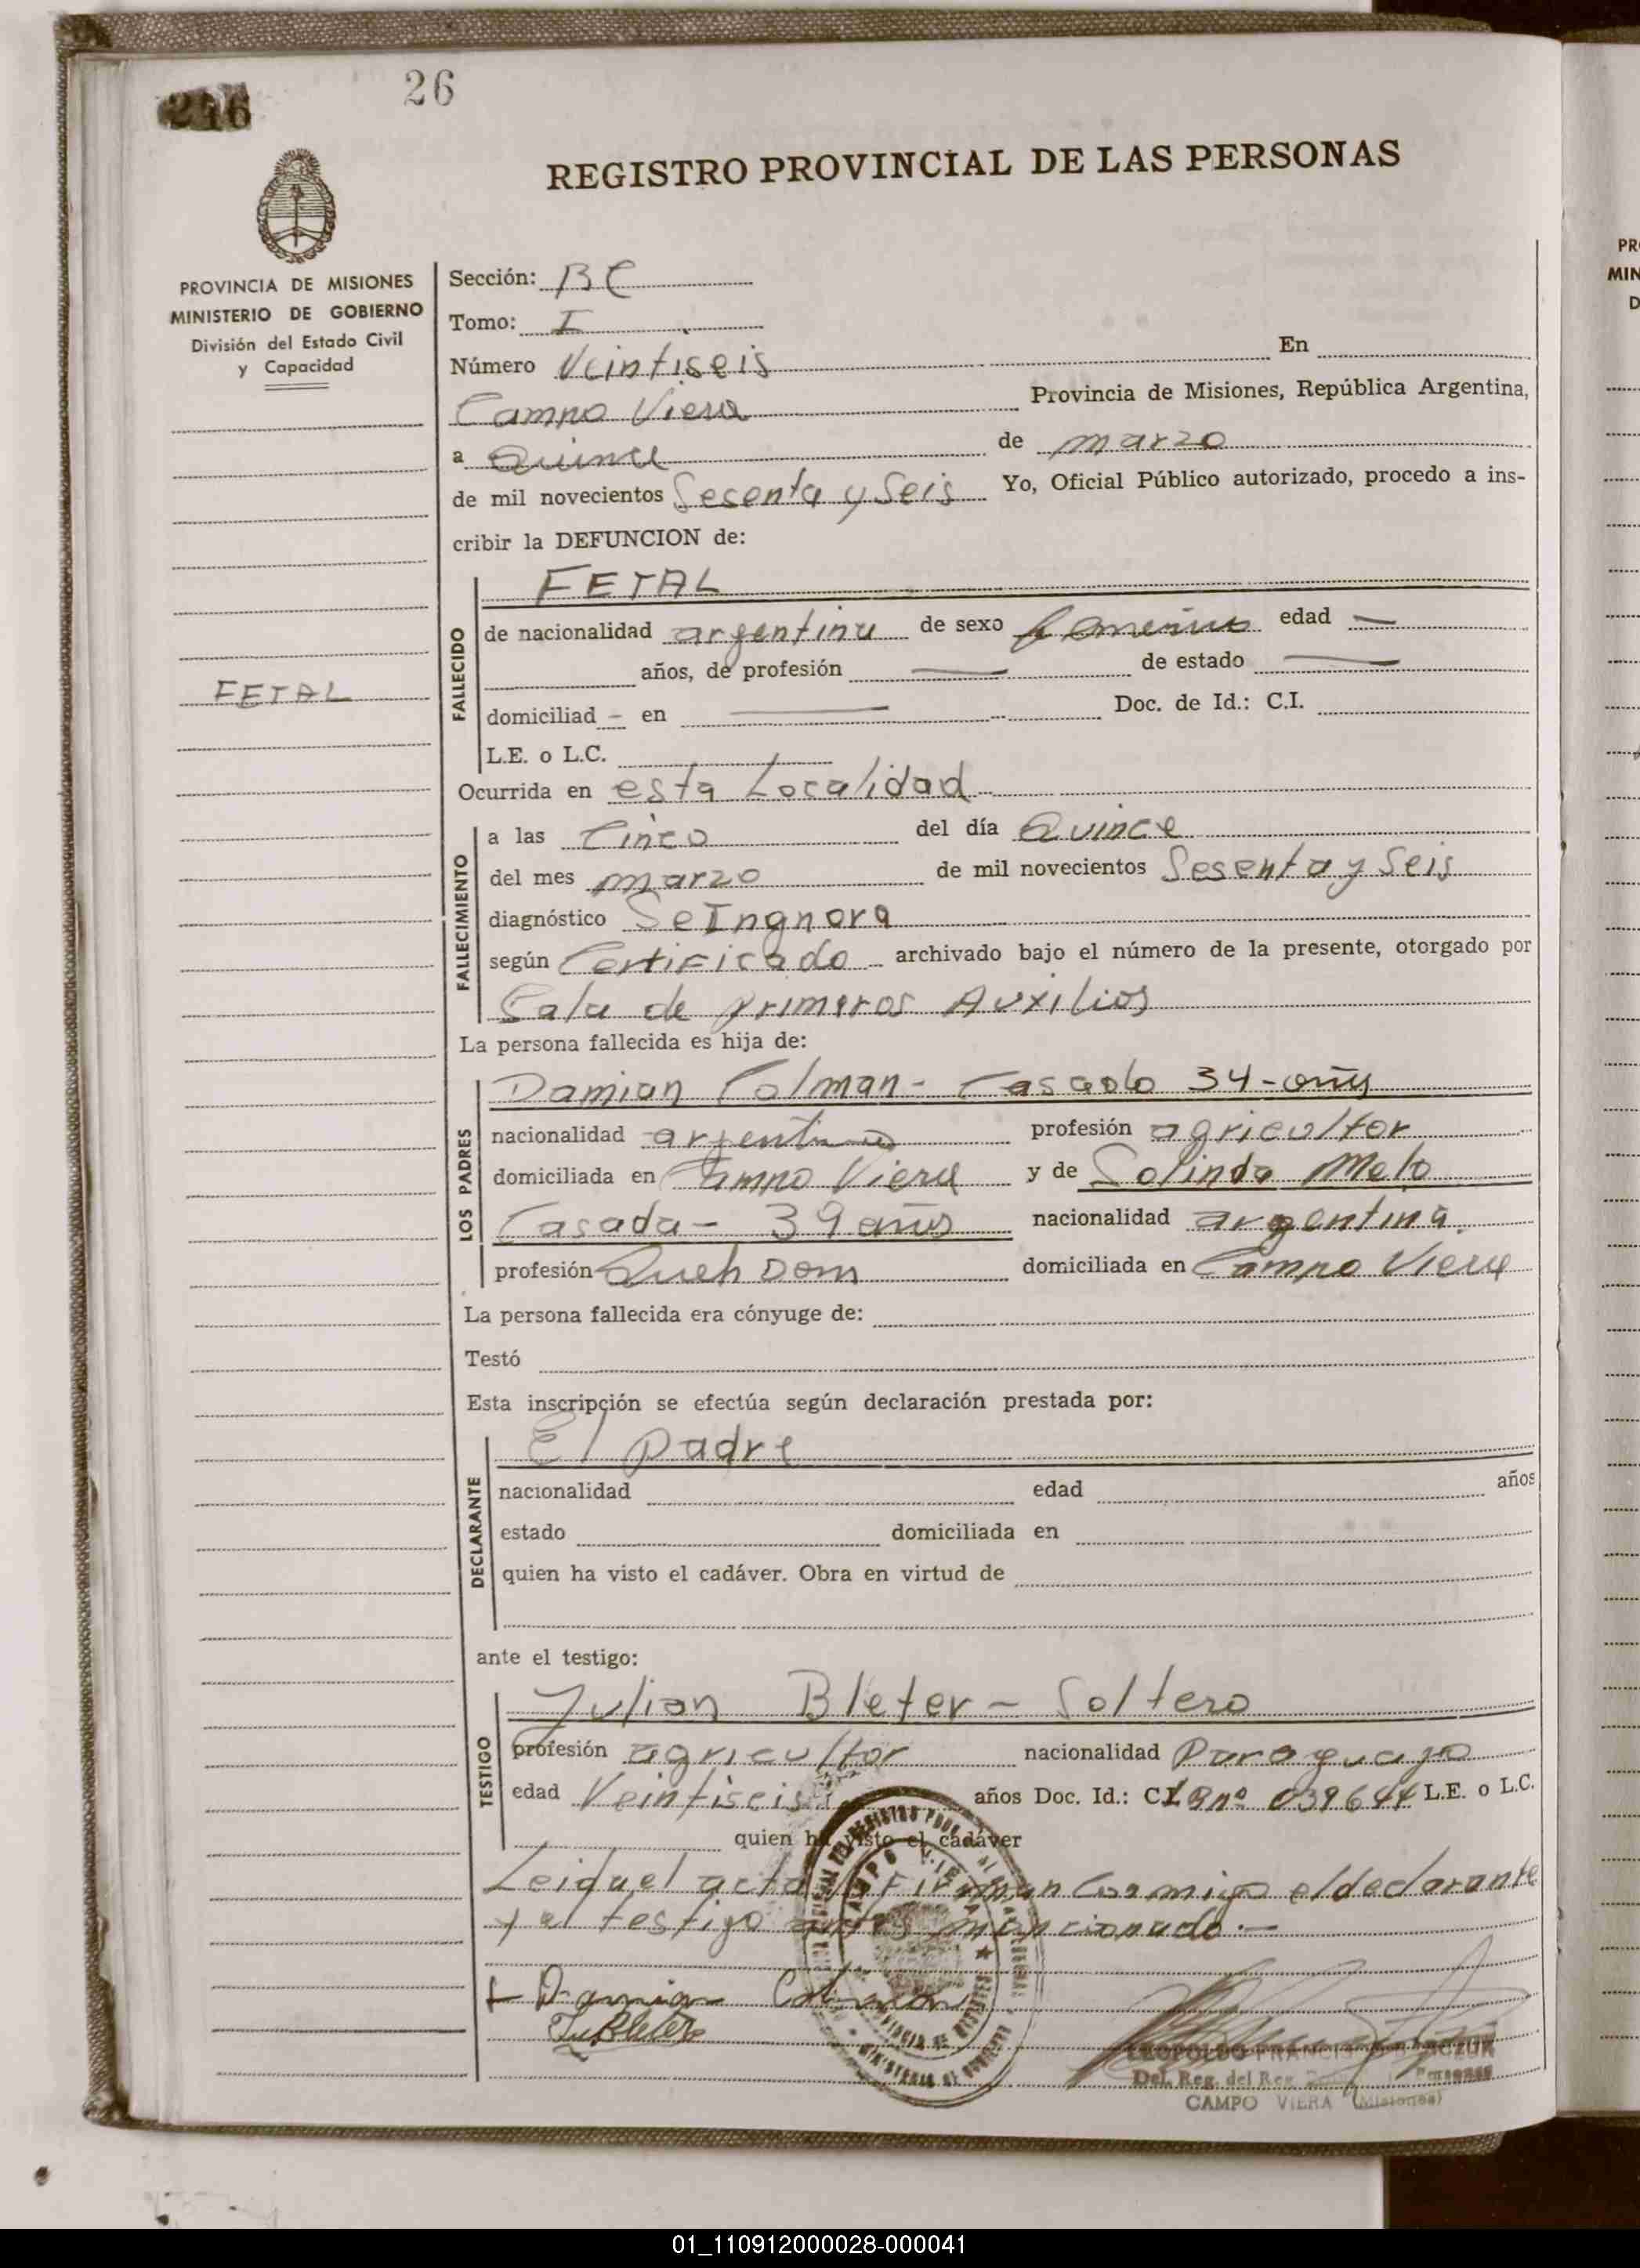 26
REGISTRO PROVINCIAL DE LAS PERSONAS
PROVINCIA DE MISIONES
MINISTERIO DE GOBIERNO
División del Estado Civil
y Capacidad
FETAL
Sección: BC
Tomo: I
Número Veintiseis En
Campo Viera Provincia de Misiones, República Argentina,
a Quince de marzo
de mil novecientos Sesenta y Seis Yo, Oficial Público autorizado, procedo a ins-
cribir la DEFUNCION de:
FETAL
FALLECIDO
de nacionalidad argentina de sexo femenino edad —
años, de profesión — de estado —
domiciliad - en — Doc. de Id.: C.I.
L.E. o L.C.
Ocurrida en esta Localidad
FALLECIMIENTO
a las Cinco del día Quince
del mes marzo de mil novecientos Sesenta y Seis
diagnóstico Se Ingnora
según Certificado archivado bajo el número de la presente, otorgado por
Sala de primeros Auxilios
La persona fallecida es hija de:
LOS PADRES
Damian Colman - Casado 34 - años
nacionalidad argentino profesión agricultor
domiciliada en Campo Viera y de Solinda Melo
Casada - 39 años nacionalidad argentina.
profesión Queh Dom domiciliada en Campo Viera
La persona fallecida era cónyuge de:
Testó
Esta inscripción se efectúa según declaración prestada por:
El Padre
DECLARANTE
nacionalidad edad años
estado domiciliada en
quien ha visto el cadáver. Obra en virtud de
ante el testigo:
Julian Bleter - Soltero
TESTIGO
profesión agricultor nacionalidad Paraguayo
edad Veintiseis años Doc. Id.: C.I. nº 039644 L.E. o L.C.
quien ha visto el cadáver
Leida el acta Firman Conmigo el declarante
y el testigo antes mencionado.—
Damian Colman
CAMPO VIERA (Misiones)
PR
MIN
D
01_110912000028-000041